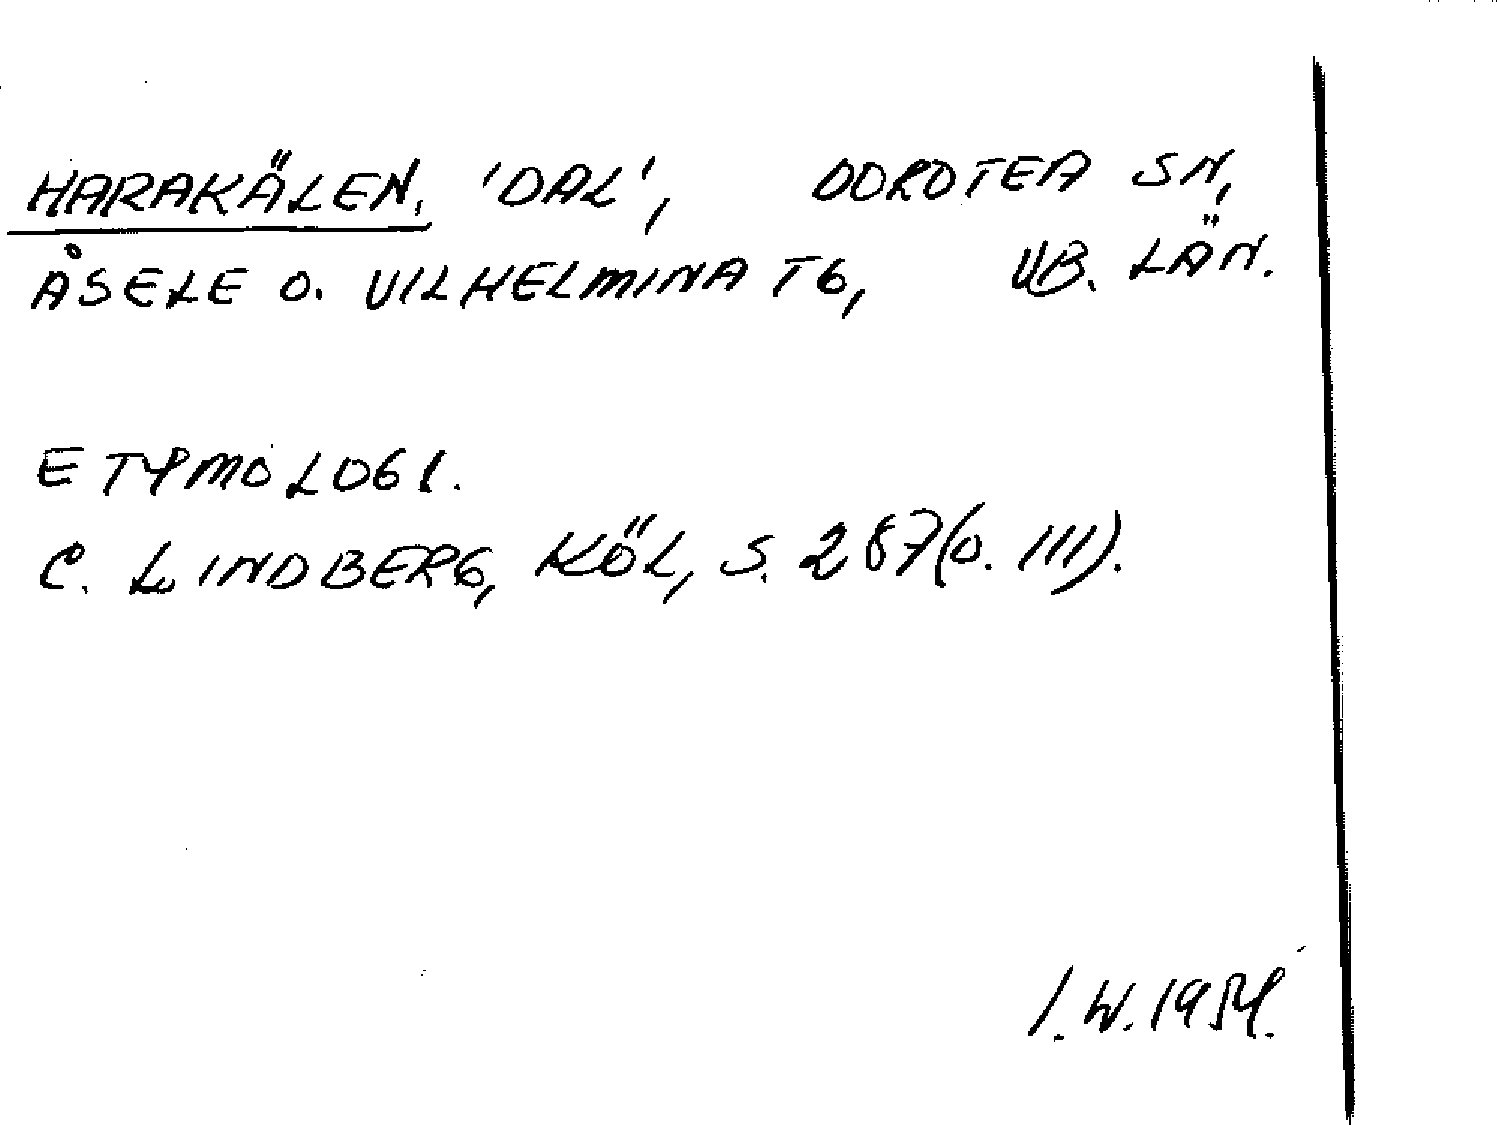 HARAKÄLEN, 'DAL', DOROTEA SN,
ÅSELE O. VILHELMINA TG, VB. LÄN.
ETYMOLOGI.
C. LINDBERG, KÖL, S. 287 (O. III).
I. W. 1954.